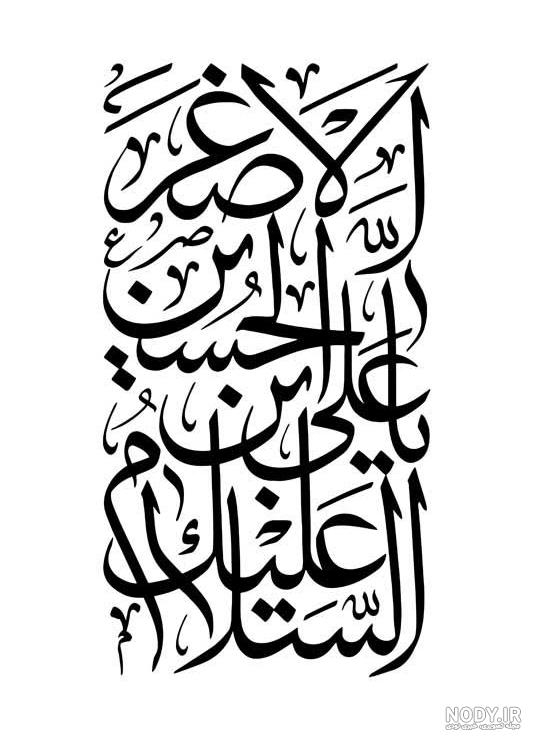 السلام عليك
يا علي ابن
الحسين
الاصغر
NODY.IR